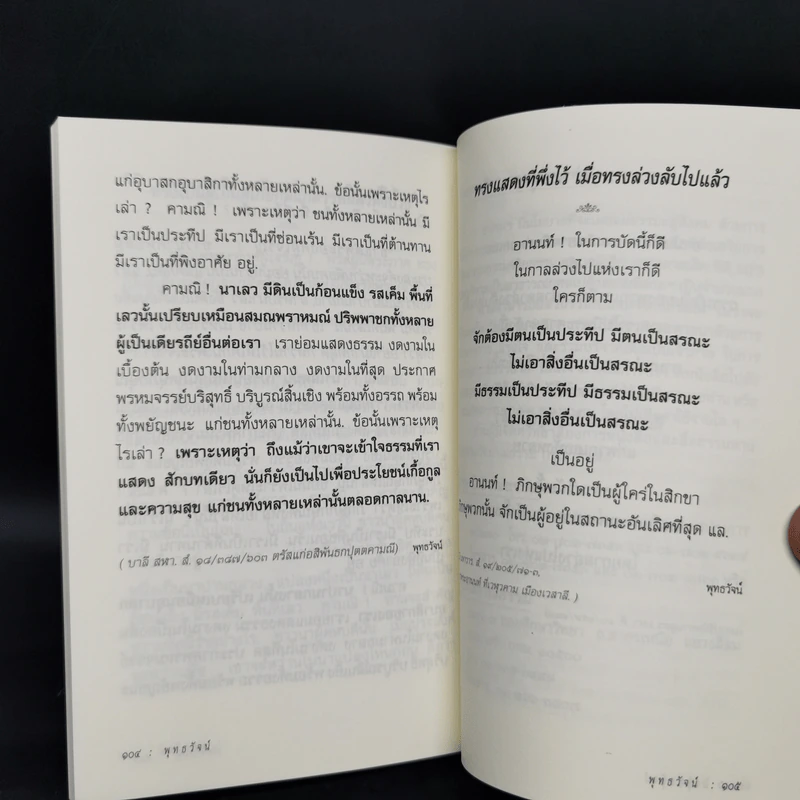 แก่อุบาสกอุบาสิกาทั้งหลายเหล่านั้น. ข้อนั้นเพราะเหตุไร
เล่า ? คามณิ ! เพราะเหตุว่า ชนทั้งหลายเหล่านั้น มี
เราเป็นประทีป มีเราเป็นที่ซ่อนเร้น มีเราเป็นที่ต้านทาน
มีเราเป็นที่พึงอาศัย อยู่.
คามณิ ! นาเลว มีดินเป็นก้อนแข็ง รสเค็ม พื้นที่
เลวนั้นเปรียบเหมือนสมณพราหมณ์ ปริพพาชกทั้งหลาย
ผู้เป็นเดียรถีย์อื่นต่อเรา เราย่อมแสดงธรรม งดงามใน
เบื้องต้น งดงามในท่ามกลาง งดงามในที่สุด ประกาศ
พรหมจรรย์บริสุทธิ์ บริบูรณ์สิ้นเชิง พร้อมทั้งอรรถ พร้อม
ทั้งพยัญชนะ แก่ชนทั้งหลายเหล่านั้น. ข้อนั้นเพราะเหตุ
ไรเล่า ? เพราะเหตุว่า ถึงแม้ว่าเขาจะเข้าใจธรรมที่เรา
แสดง สักบทเดียว นั่นก็ยังเป็นไปเพื่อประโยชน์เกื้อกูล
และความสุข แก่ชนทั้งหลายเหล่านั้นตลอดกาลนาน.
( บาลี สฬา. สํ. ๑๘/๓๘๗/๖๐๓ ตรัสแก่อสิพันธกปุตตคามณี) พุทธวัจน์
๑๐๔ : พุทธวัจน์
ทรงแสดงที่พึ่งไว้ เมื่อทรงล่วงลับไปแล้ว
อานนท์ ! ในการบัดนี้ก็ดี
ในกาลล่วงไปแห่งเราก็ดี
ใครก็ตาม
จักต้องมีตนเป็นประทีป มีตนเป็นสรณะ
ไม่เอาสิ่งอื่นเป็นสรณะ
มีธรรมเป็นประทีป มีธรรมเป็นสรณะ
ไม่เอาสิ่งอื่นเป็นสรณะ
เป็นอยู่
อานนท์ ! ภิกษุพวกใดเป็นผู้ใคร่ในสิกขา
ภิกษุพวกนั้น จักเป็นผู้อยู่ในสถานะอันเลิศที่สุด แล.
สํ ๑๙/๒๐๕/๗๑-๓.
ที่เวฬุวคาม เมืองเวสาลี. ) พุทธวัจน์
พุทธวัจน์ : ๑๐๕